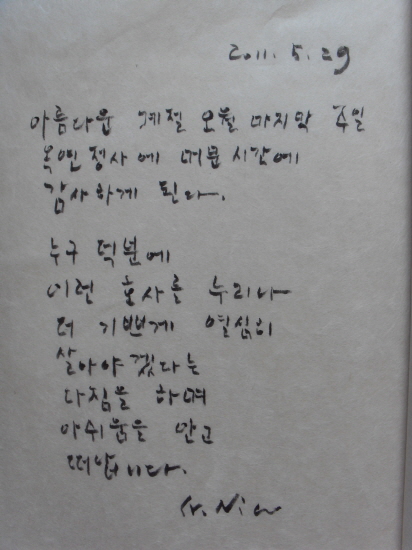 2011. 5. 29
아름다운 계절 오월 마지막 주일
옥연정사에 머문 시간에
감사하게 된다.
누구 덕분에
이런 호사를 누리나
더 기쁘게 열심히
살아야겠다는
다짐을 하며
아쉬움을 안고
떠납니다.